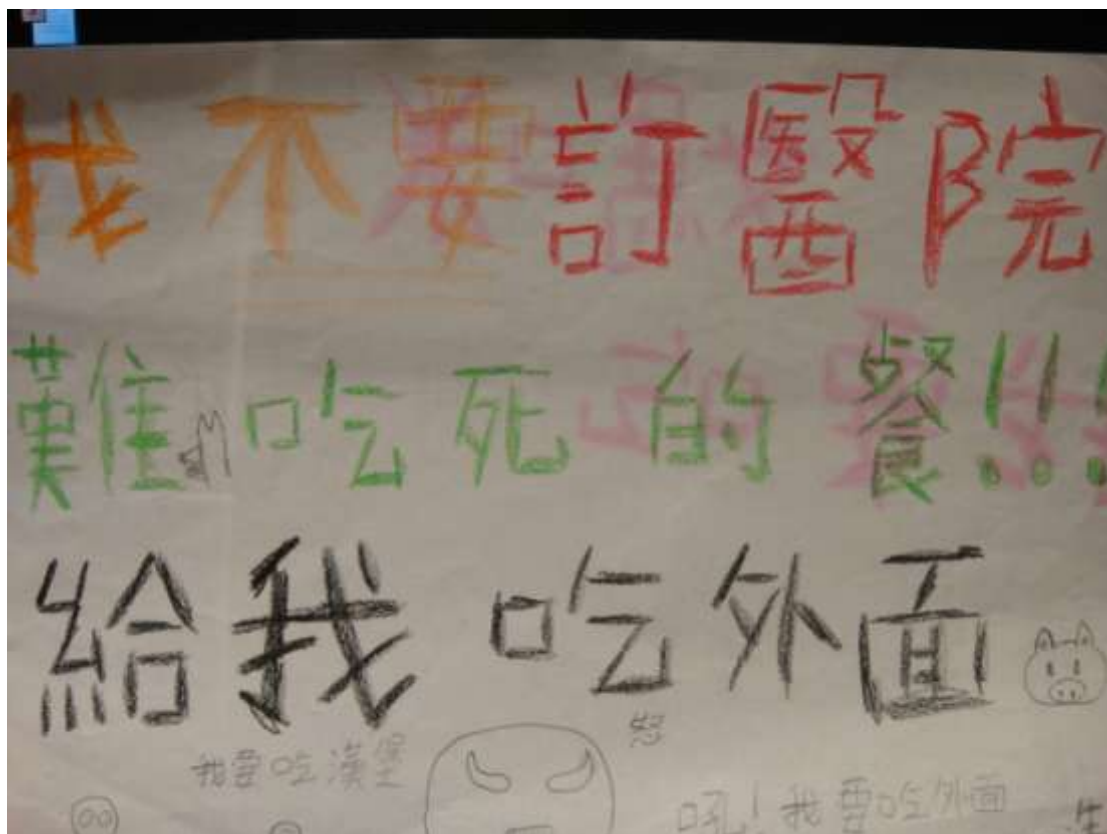 我不要訂醫院
難吃死的餐!!!
給我吃外面
怒
我要吃漢堡
吼!我要吃外面
生